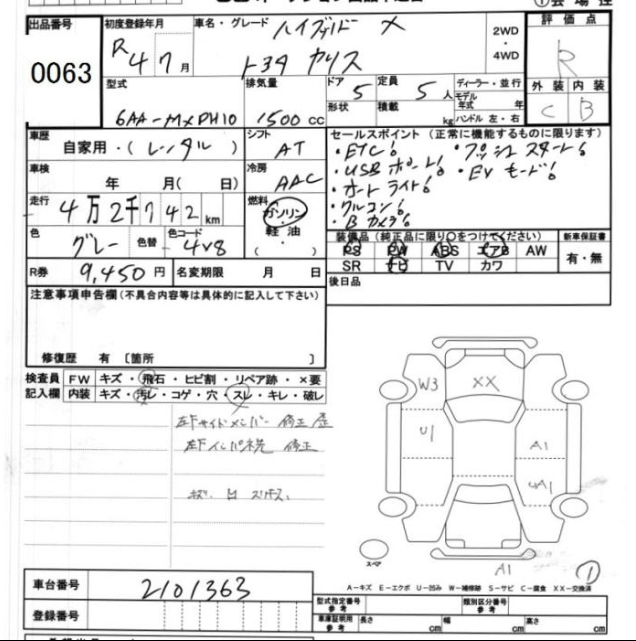 出品番号 0063
初度登録年月 R4 7月
車名・グレード ハイブリッド X
トヨタ ヤリス
2WD・4WD
評価点 R
外装 内装
C B
型式 6AA-MXPH10
排気量 1500 CC
ドア 5
定員 5人
ディーラー・並行
形状
積載 kg
モデル年式 年
ハンドル 左・右
車歴 自家用・(レンタル)
シフト AT
車検 年 月(日)
冷房 AAC
走行 4万2千742km
燃料 ガソリン
軽油
( )
色 グレー
色替
色コード 4V8
R券 9,450円
名変期限 月 日
セールスポイント(正常に機能するものに限ります)
・ETC! ・プッシュスタート!
・USBポート! ・EVモード!
・オートライト!
・クルコン!
・Bカメラ!
装備品(純正品に限り○をつけてください)
PS PW ABS エアB AW
SR ナビ TV カワ
新車保証書
有・無
後日品
注意事項申告欄(不具合内容等は具体的に記入して下さい)
修復歴 有〔箇所 〕
検査員記入欄
FW キズ・飛石・ヒビ割・リペア跡・×要
内装 キズ・汚レ・コゲ・穴・スレ・キレ・破レ
左Fサイドメンバー 修正 歴
左Fインパネ先 修正
W3
XX
U1
A1
UA1
A1
①
スペア
A-キズ E-エクボ U-凹み W-補修跡 S-サビ C-腐食 XX-交換済
車台番号 2101363
登録番号
型式指定番号 参考
類別区分番号 参考
車庫証明用 参考
長さ cm 幅 cm 高さ cm